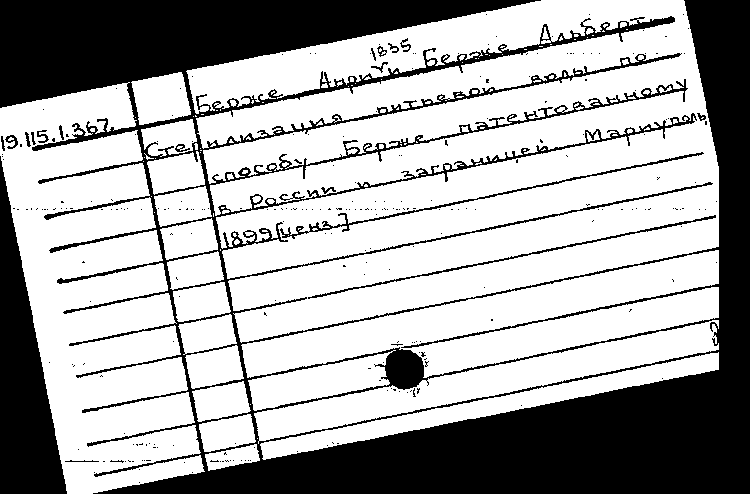 1835
Берже, Анри и Берже, Альберт
19.115.1.367
Стерилизация питьевой воды по
способу Берже, патентованному
в России и заграницей. Мариуполь,
1899 [ценз.]